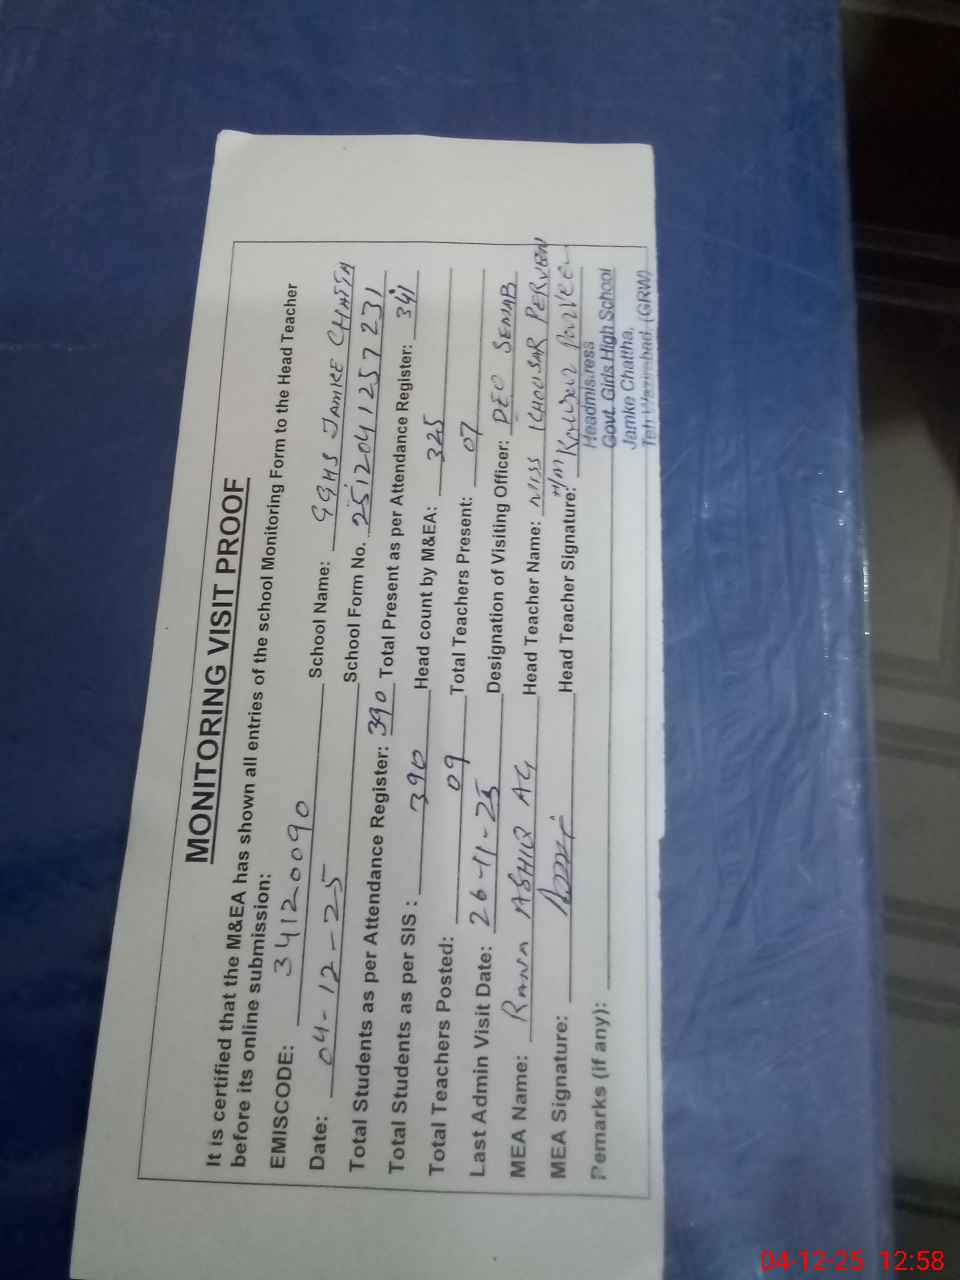 MONITORING VISIT PROOF
It is certified that the M&EA has shown all entries of the school Monitoring Form to the Head Teacher
before its online submission:
EMISCODE: 34120090 School Name: GGHS JAMKE CHATTA
Date: 04-12-25 School Form No. 2512041257231
Total Students as per Attendance Register: 390 Total Present as per Attendance Register: 341
Total Students as per SIS: 390 Head count by M&EA: 325
Total Teachers Posted: 09 Total Teachers Present: 07
Last Admin Visit Date: 26-11-25 Designation of Visiting Officer: DEO SEMAB
MEA Name: RANA ASHIQ AG Head Teacher Name: MISS KHOUSAR PERVEN
MEA Signature: Head Teacher Signature:
Remarks (if any):
Headmistress
Govt. Girls High School
Jamke Chattha,
Teh Wazirabad. (GRW)
04-12-25 12:58